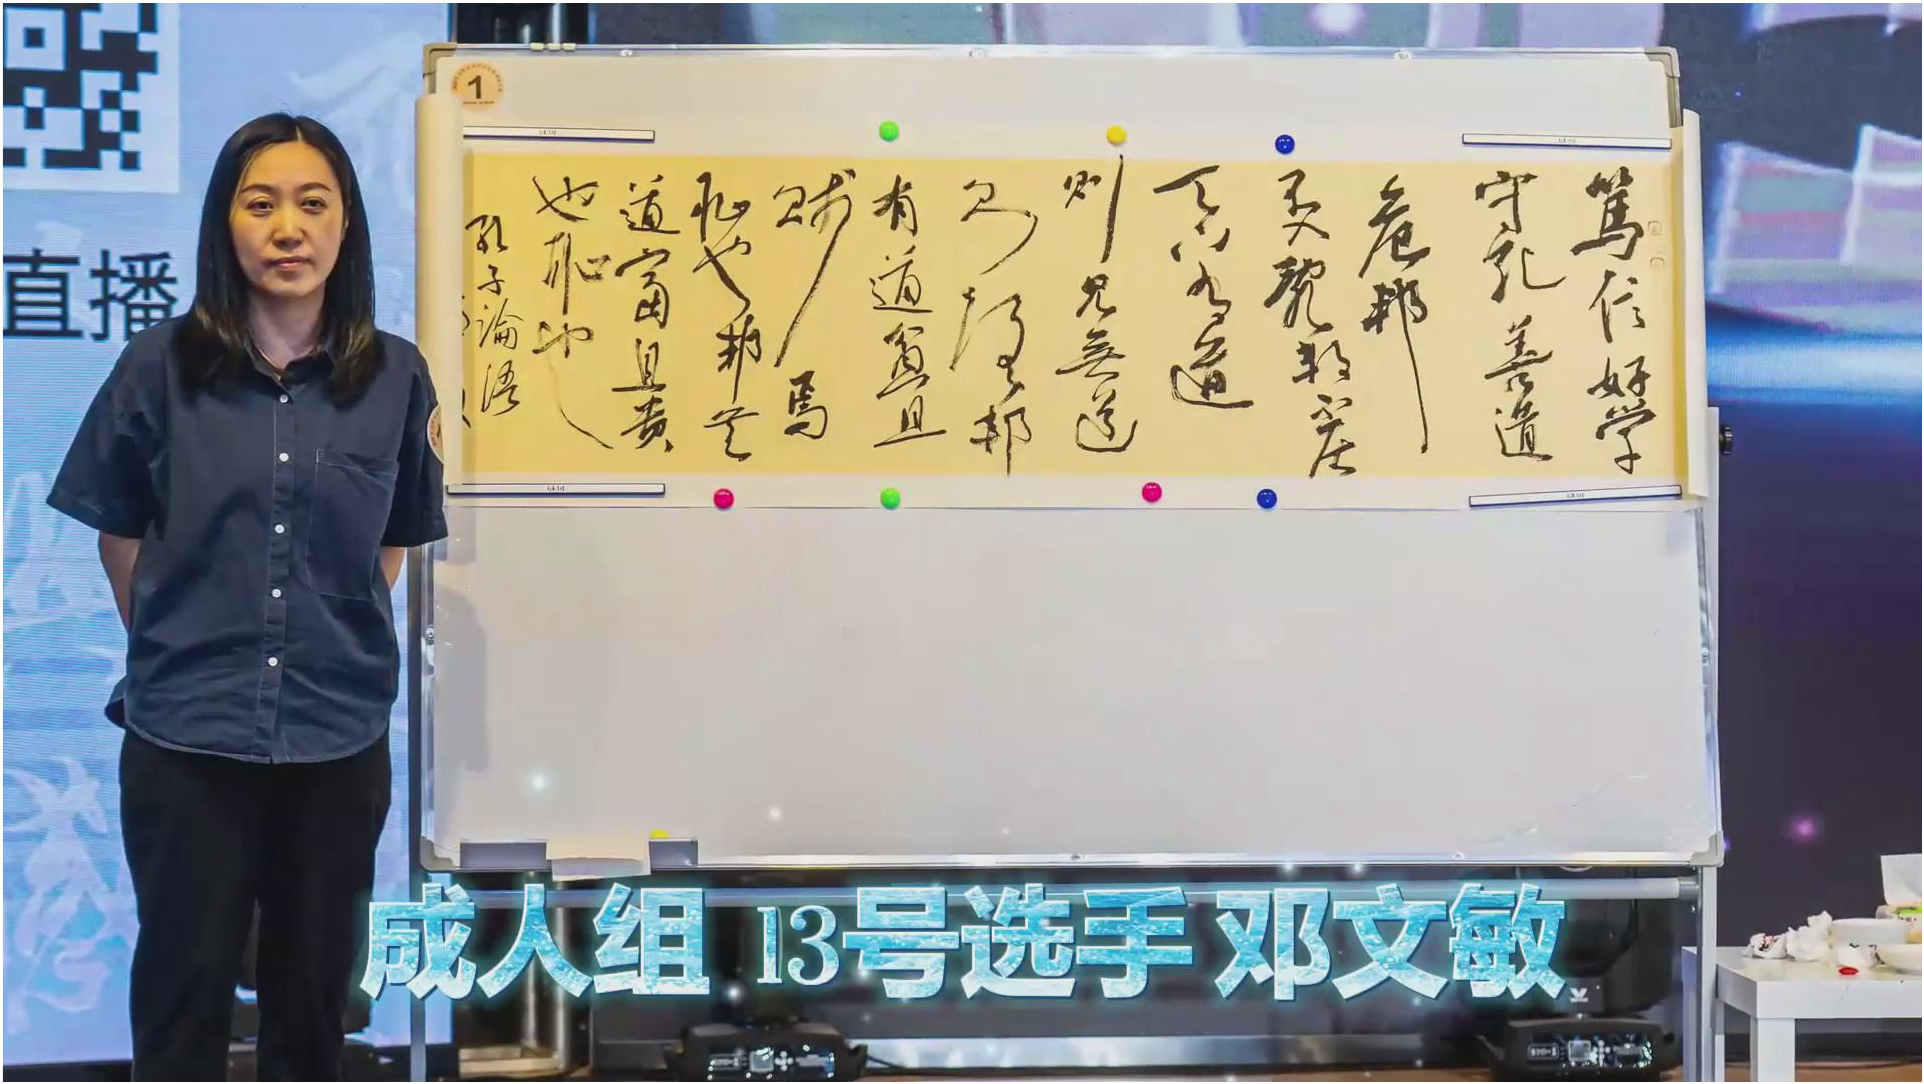 直播
1
篤信好学
守死善道
危邦
不入亂邦不居
天下有道
則見無道
則隱邦
有道貧且
賤焉
恥也邦無
道富且貴
也恥也
孔子論語
成人组 13号选手 邓文敏